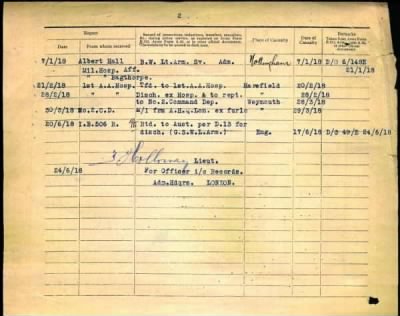 2
Report
Record of promotions, reductions, transfers, casualties, etc., during active service, as reported on Army Form B.213, Army Form A.36, or in other official documents. The authority to be quoted in each case.
Place of Casualty
Date of Casualty
Remarks
Date
From whom received
7/1/18 Albert Hall B.W. Lt.Arm. Sv. Adm Nottingham 7/1/18 D/O 6/149E
Mil.Hosp. Aff. 21/1/18
" Bagthorpe.
21/2/18 1st A.A.Hosp. Tfd. to 1st A.A.Hosp. Harefield 20/2/18
28/2/18 " " Disch ex Hosp. & to rept. 28/2/18
to No.2.Command Dep. Weymouth 28/2/18
30/3/18 No.2.C.D. M/I frm A.H.Q.Lon. ex furlo " 29/3/18
20/6/18 I.B.506 R. Rtd. to Aust. per D.13 for
disch. (G.S.W.L.Arm.) Eng. 17/6/18 D/O 49/E 24/6/18
Holloway Lieut.
24/6/18 For Officer i/c Records.
Adm.Hdqrs. LONDON.